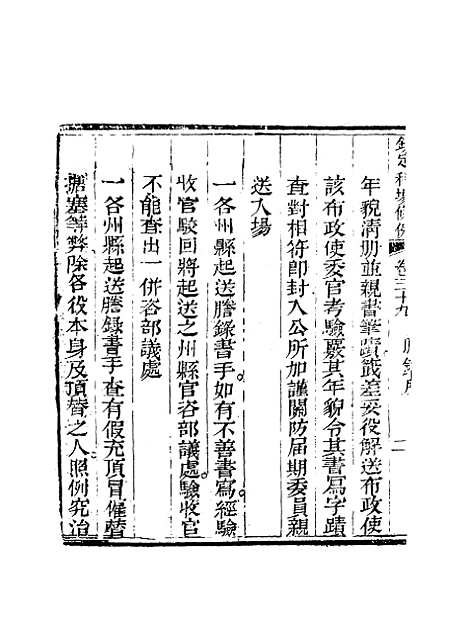 欽定科場條例 卷三十九 謄錄所 二
年貌清册並親書筆蹟籤差妥役解送布政使
該布政使委官考驗覈其年貌令其書寫字蹟
查對相符即封入公所加謹關防届期委員親
送入場
一各州縣起送謄錄書手如有不善書寫經驗
收官駁回將起送之州縣官咨部議處驗收官
不能查出一併咨部議處
一各州縣起送謄錄書手查有假充頂冒僱替
搪塞等弊除各役本身及頂替之人照例究治